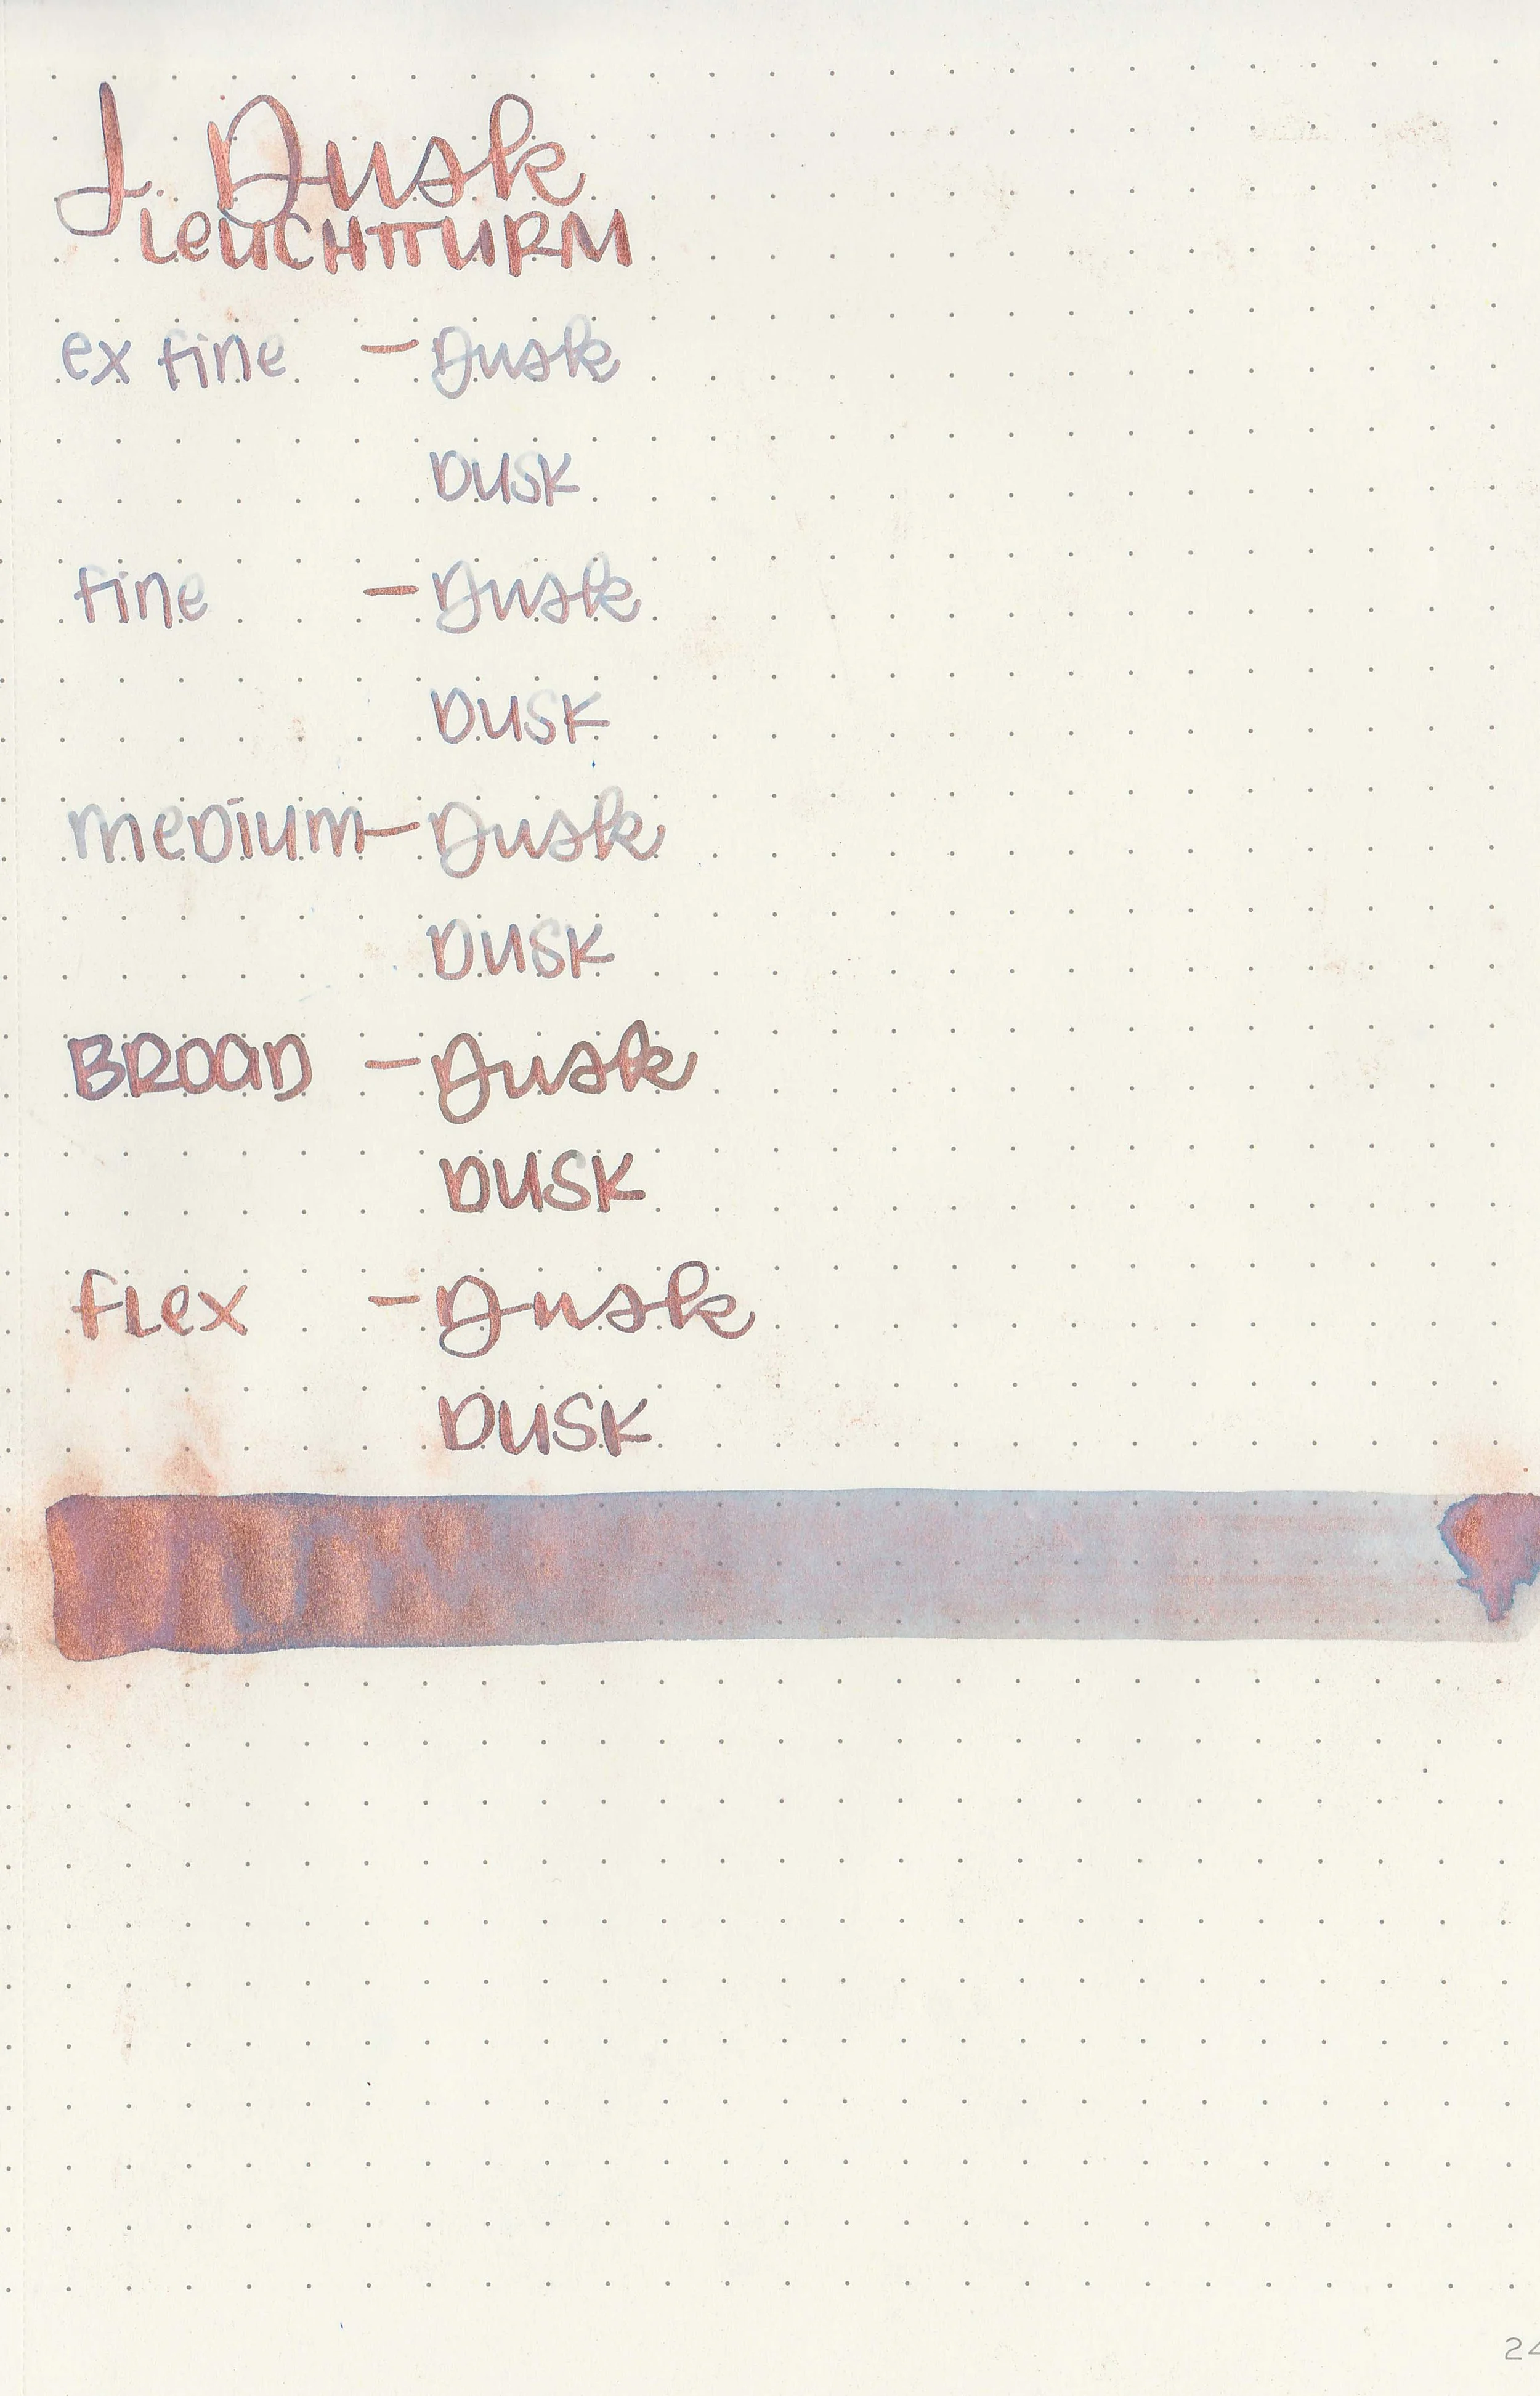 J. Dusk
LEUCHTTURM
ex fine - Dusk
DUSK
fine - Dusk
DUSK
meDium - Dusk
DUSK
BROAD - Dusk
DUSK
fLex - Dusk
DUSK
24